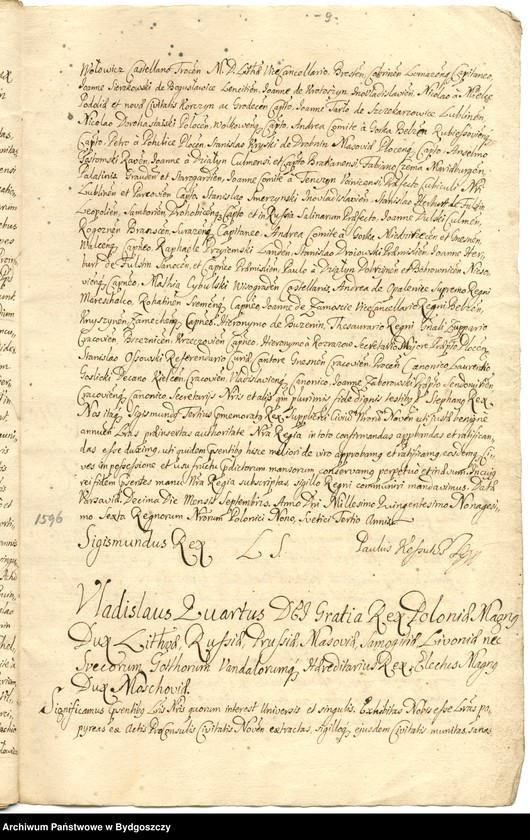 - 9 -
Wołowicz Castellano Trocen M. D. Lithæ ViceCancellario, Bresten Cobrinen Capitaneo,
Joanne Sierakowski de Bogusławice Lancitien, Joanne de Krotoszyn Inowladislavien, Nicolao de
Podolia et nova Civitatis Korczyn ac Grodecen Capto, Joanne Tarlo de Szczekarzowice Lublinen,
Nicolao Dorohastaiski Polocen, Wolkowen, Capto, Andrea Comite à Gorka
Capto, Petro à Plocen Stanislao Kryski de Drobnin Masoviæ Plocen, Capto, Anselmo
Gostomski Raven, Joanne a Dzialyn Culmensi et Capto Fabiano Czema Mariæburgen,
Palatinis, et Starogardien, Joanne Comite à Tenczyn Voinicensi, Præfecto Cubiculi Nri
Lublinen et Parcovien Capto, Stanislao Inowladislavien Stanislao Herburt de Fulstin
Leopolien, Samborien, Drohobicen, Capto et in Russia Salinarum Præfecto, Joanne Dulski Culmen,
Rogoznen Brancen, Surazen, Capitaneo, Andrea Comite à Gorka, et Gnesnen,
Walcen, Capneo, Raphaele Przyiemski Landen, Stanislao Drojowski Præmislien, Joanne Her,,
burt de Fulstin Sanocen, et Capneo Præmislien, Paulo à Dzialyn
Capneo, Mathia Castellanis, Andrea de Opalenice Supremo Regni
Mareschalco, Rohatinen Sremen, Capneo, Joanne de Zamoscie ViceCancellario Regni Belzen,
Knyszynen, Zamechen, Capneo, Hieronymo de Buzenin, Thesaurario Regni Gnali Zuppario
Cracovien, Brzeznicen Krzeczovien Capneo, Hieronymo à Rozrazow Secretario Major Præpto Plocen,
Stanislao Ossowski Referendario Curiæ Cantore Gnesnen Cracovien Canonico, Laurentio
Goslicki Decano Kielcen Cracovien, Vladislavien, Canonico, Joanne Zaborowski Præpto Sendomirien
Cracovien, Canonico, Secretariis Nris et aliis quam plurimis fide dignis testibus, Stephanus Rex.
Nos itaque Sigismundus Tertius commemoratus Rex, Supplicationi Civium Noven uti justæ benigne
annuen Lras præinsertas authoritate Nra Regia in toto confirmandas approbandas et ratifican,
das esse duximus, uti quidem præsentibus hisce meliori de jure approbamus et ratificamus, eosdemque Ci,,
ves in possessione et usufructu prædictorum mansorum conservamus perpetuo et in ævum. In cujus
rei fidem præsentes manu Nra Regia subscriptas, sigillo Regni communiri mandavimus. Datum
Varsaviæ, Decima Die Mensis Septembris, Anno Dni Millesimo Quingentesimo Nonagesi,
mo Sexto Regnorum Nrorum Polonici Nono, Svetici Tertio Annis.
1596
Sigismundus Rex L S
Vladislaus Quartus DEI Gratia Rex Poloniæ Magnus
Dux Lithuæ, Russiæ, Prussiæ, Masoviæ, Samogitiæ Livoniæ nec
Svecorum Gothorum Vandalorumque Hæreditarius Rex, Electus Magnus
Dux Moschoviæ.
Significamus præsentibus Lris Nris quorum interest Universis et singulis. Exhibitas Nobis esse Lras pa,
pyreas ex Actis ProConsulis Civitatis Noven extractas, sigilloque ejusdem Civitatis munitas, sanas
Archiwum Państwowe w Bydgoszczy